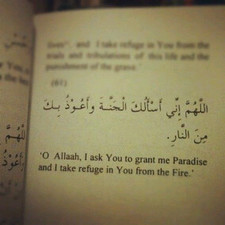 lives", and I take refuge in You from the
trials and tribulations of this life and the
punishment of the grave.'
(61)
اللَّهُمَّ إِنِّي أَسْأَلُكَ الْجَنَّةَ وَأَعُوذُ بِكَ
مِنَ النَّارِ.
'O Allaah, I ask You to grant me Paradise
and I take refuge in You from the Fire.'